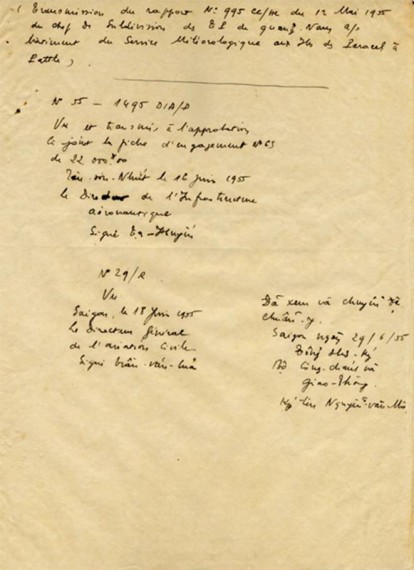 ( Transmission du rapport N° 995 CC/HC du 12 Mai 1955
du chef de Subdivision de EL de Quang-Nam a/s
bâtiment du Service Météorologique aux Iles des Paracel à
Pattle)
N° 55 – 1495 DIA/D
Vu et transmis à l'approbation
ci joint la fiche d'engagement N° 63
de 22 000$00
Tân-sơn-Nhứt le 16 Juin 1955
le Directeur de l'Infrastructure
aéronautique
Signé Tạ-Huyến
N° 29/R
Vu
Saigon, le 18 Juin 1955
le directeur Général
de l'aviation Civile
Signé trần-văn-
Đã xem và chuyển để
chuẩn-y.
Saigon ngày 29/6/55
Đổng
Bộ Công-chánh và
giao-thông.
Ký tên Nguyễn-văn-